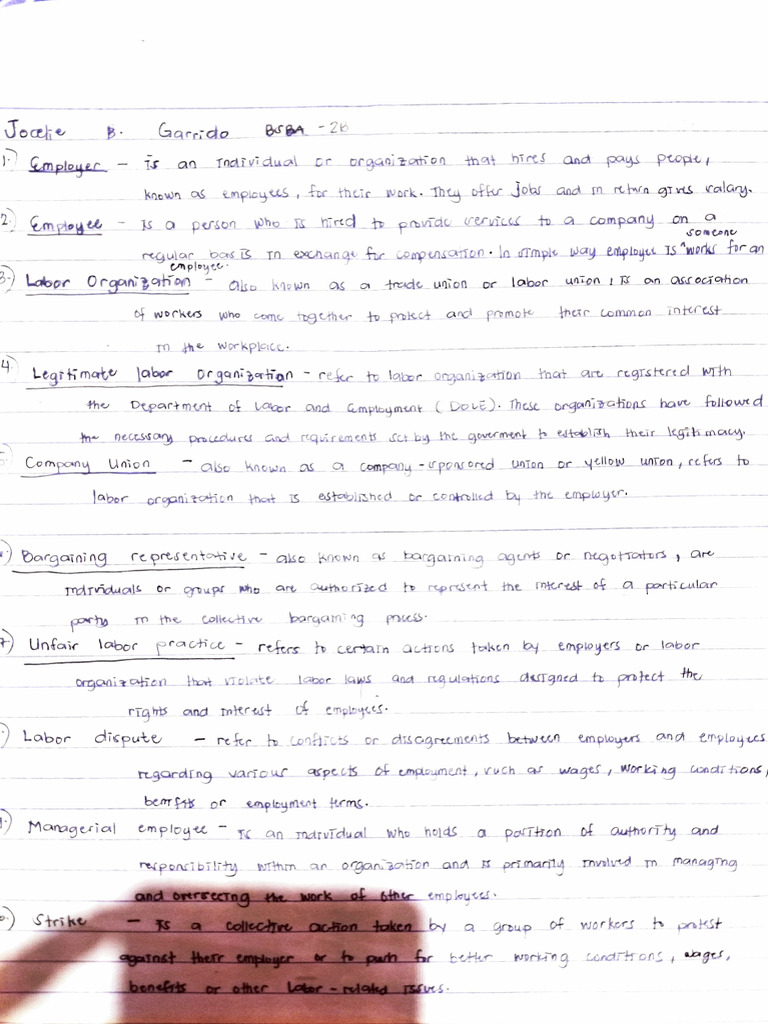 Jocelie B. Garrido BSBA - 2B
1.) Employer - is an individual or organization that hires and pays people,
known as employees, for their work. They offer jobs and in return gives salary.
2.) Employee - is a person who is hired to provide services to a company on a
someone
regular basis in exchange for compensation. In simple way employee is ^works for an
employee.
3.) Labor Organization - also known as a trade union or labor union, is an association
of workers who come together to protect and promote their common interest
in the workplace.
4. Legitimate labor organization - refer to labor organization that are registered with
the Department of Labor and Employment (DOLE). These organizations have followed
the necessary procedures and requirements set by the goverment to establish their legitimacy.
5. Company Union - also known as a company-sponsored union or yellow union, refers to
labor organization that is established or controlled by the employer.
.) Bargaining representative - also known as bargaining agents or negotiators, are
individuals or groups who are authorized to represent the interest of a particular
party in the collective bargaining process.
7) Unfair labor practice - refers to certain actions taken by employers or labor
organization that violate labor laws and regulations designed to protect the
rights and interest of employees.
.) Labor dispute - refer to conflicts or disagreements between employers and employees
regarding various aspects of employment, such as wages, working conditions,
benefits or employment terms.
.) Managerial employee - is an individual who holds a position of authority and
responsibility within an organization and is primarily involved in managing
and overseeing the work of other employees.
.) Strike - is a collective action taken by a group of workers to protest
against their employer or to push for better working conditions, wages,
benefits or other labor-related issues.